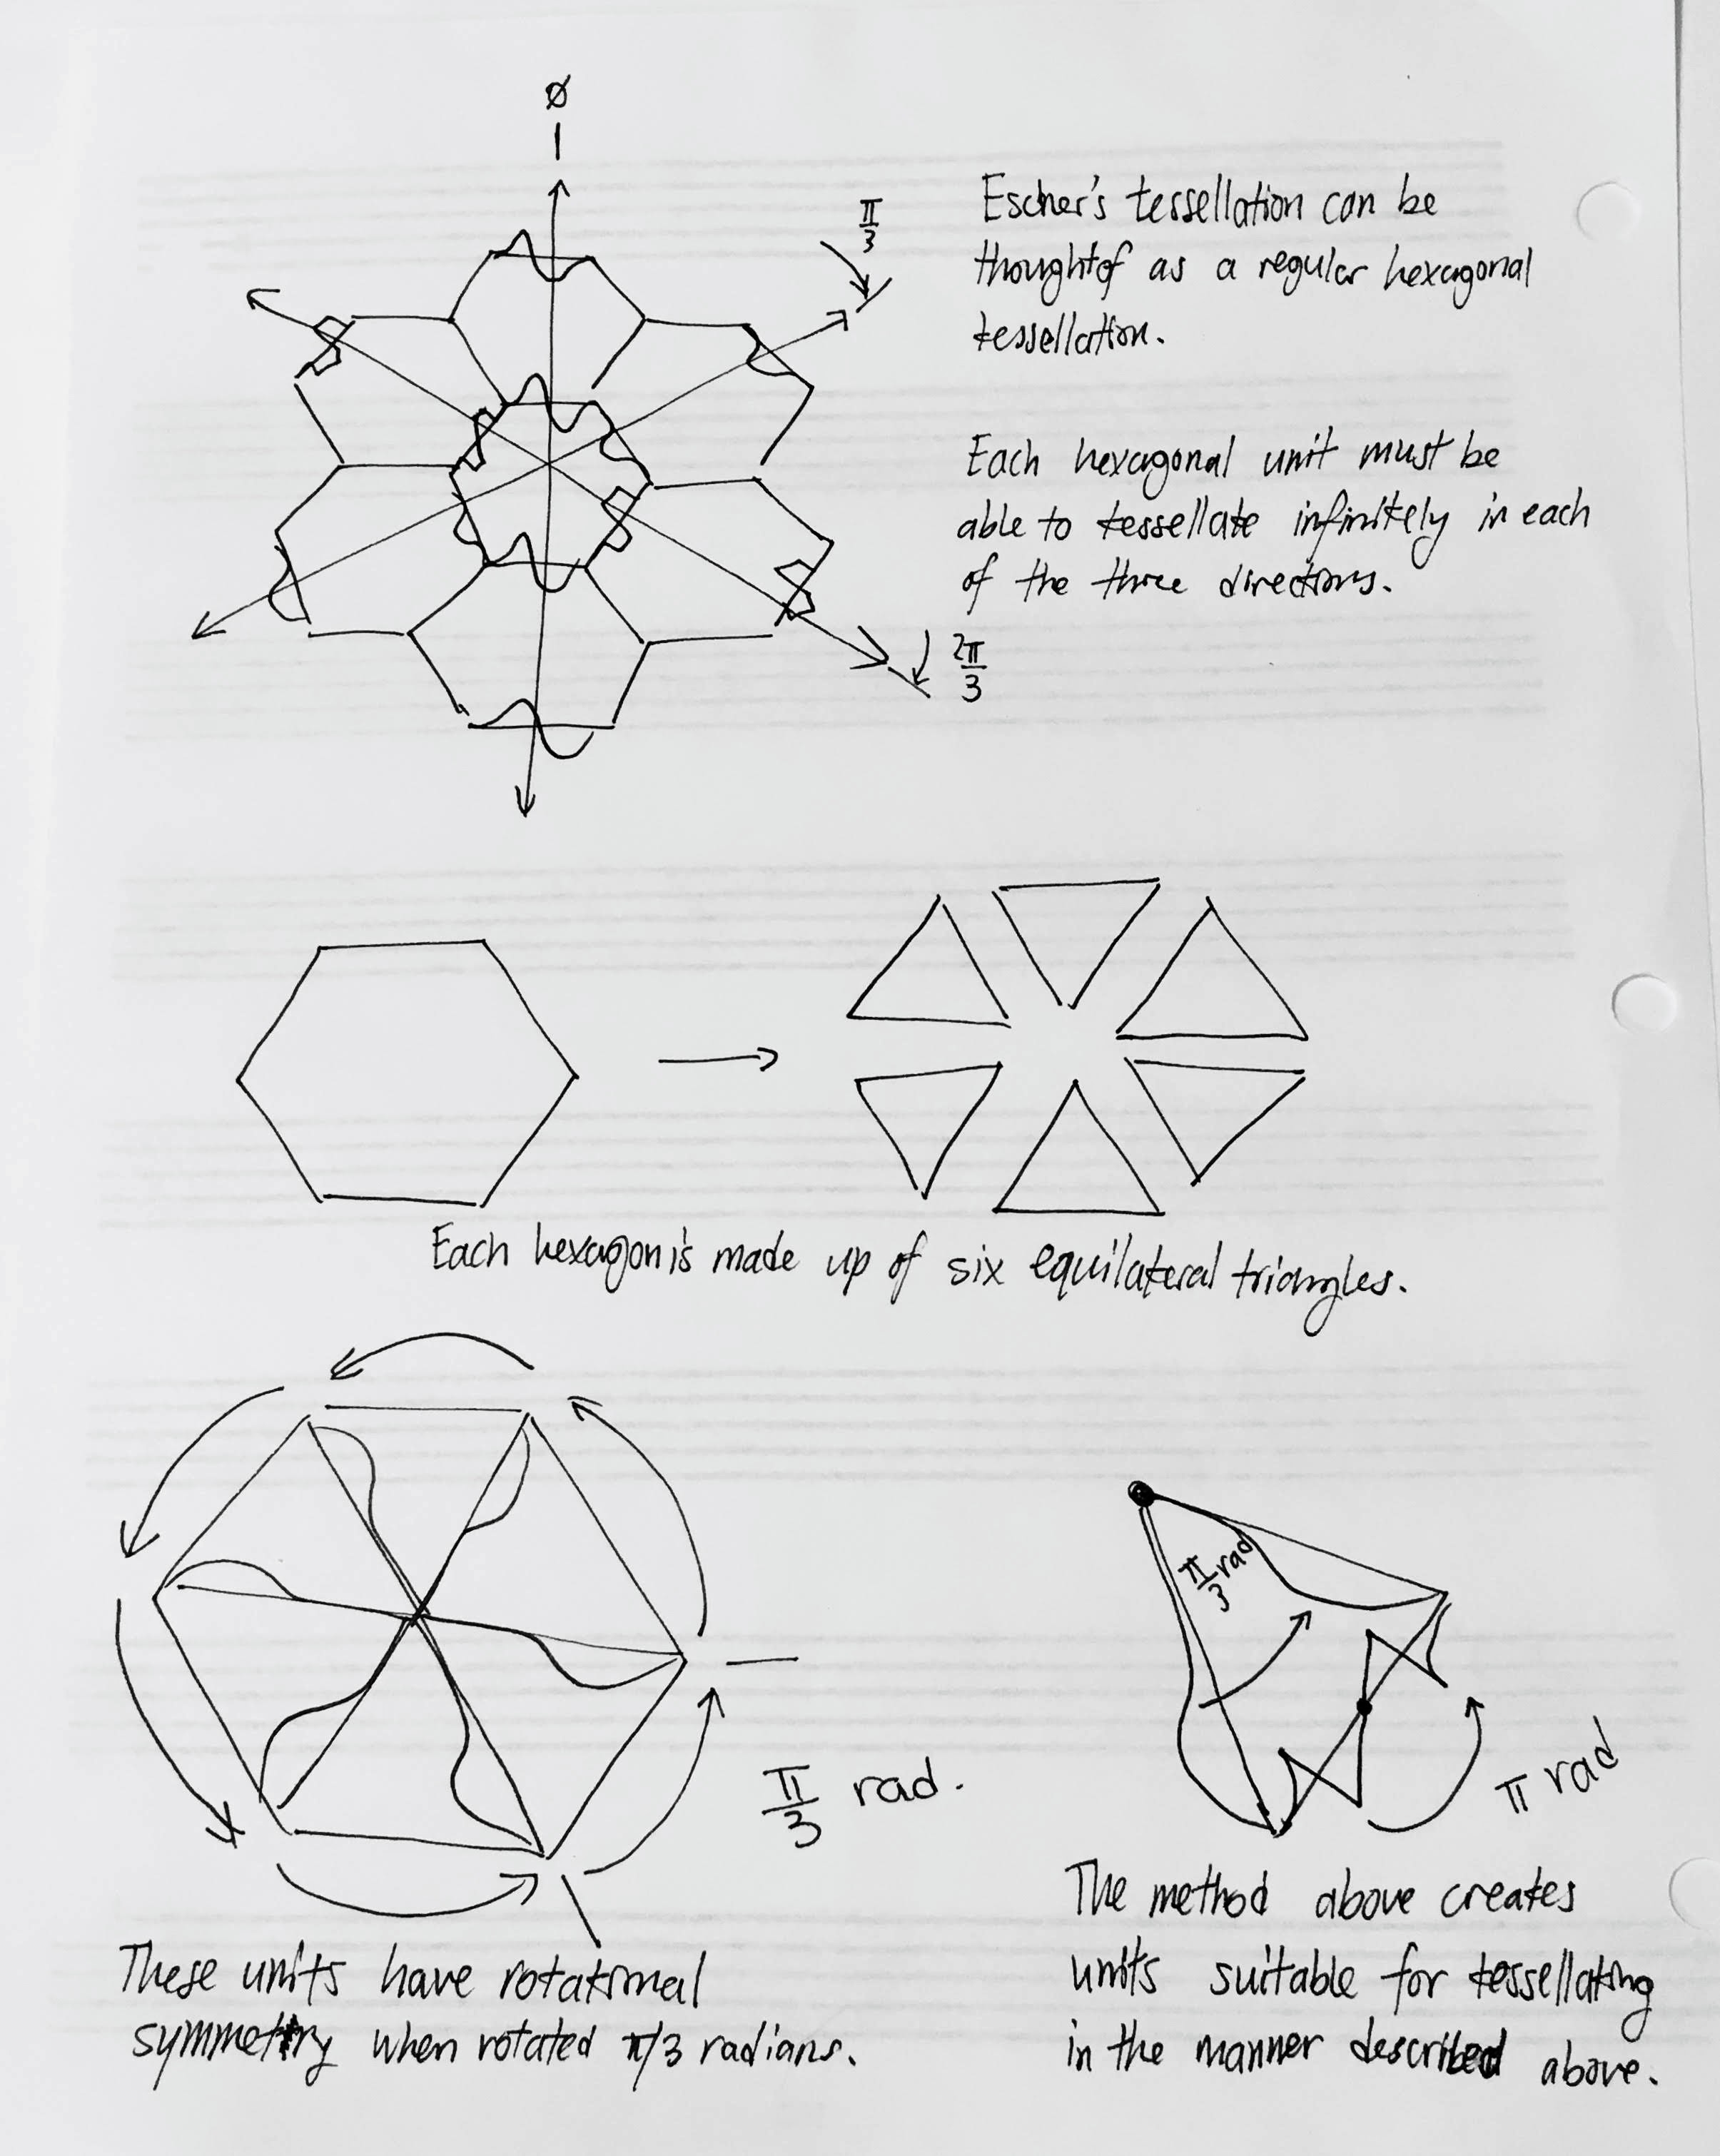 Ø
π/3
Escher's tessellation can be
thought of as a regular hexagonal
tessellation.
Each hexagonal unit must be
able to tessellate infinitely in each
of the three directions.
2π/3
Each hexagon is made up of six equilateral triangles.
π/3 rad
π/3 rad.
π rad
These units have rotational
symmetry when rotated π/3 radians.
The method above creates
units suitable for tessellating
in the manner described above.